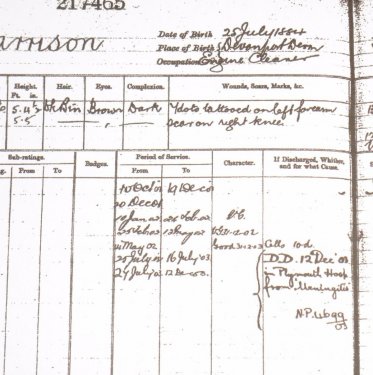 217465
arrison
Date of Birth 25 July 1884
Place of Birth Devonport Devon
Occupation Engine Cleaner
Height. Hair. Eyes. Complexion. Wounds, Scars, Marks, &c.
Ft. in.
5.4½ Brown Dark 7 dots tattooed on left forearm
5.5 scar on right knee
Sub-ratings. Badges. Period of Service. Character. If Discharged, Whither, and for what Cause.
From To From To
10 Oct 01 19 Dec 01
20 Dec 01
10 Jan 02 24 Feb 02 V.G.
25 Feb 02 12 May 02 31.12.02
May 02 Good 31.12.03 Cells 10 d.
25 July 16 July 03 D.D. 12 Dec 03
12 Dec 03 in Plymouth Hosp
from Meningitis
N.P.
03